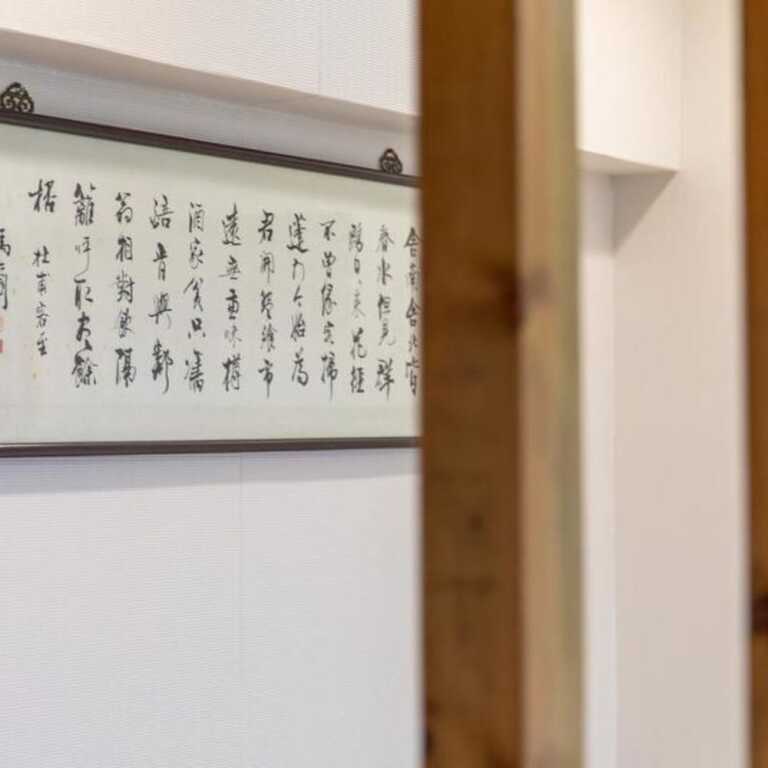 舍南舍北皆
春水但見群
鷗日日來花徑
不曾緣客掃
蓬門今始為
君開盤飧市
遠無重味樽
酒家貧只舊
醅肯與鄰
翁相對飲隔
籬呼取盡餘
桮 杜甫客至